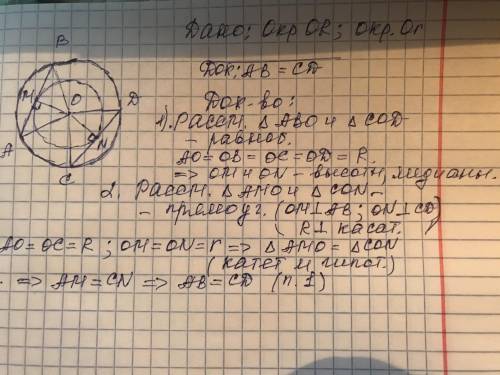 Дано; Окр OR; окр. Or
Док; AB = CD
Док-во:
1). Рассм. △ ABO и △ COD
- равноб.
AO = OB = OC = OD = R.
=> OM и ON - высоты, медианы.
2. Рассм. △ AMO и △ CON -
- прямоуг. (OM⊥AB; ON⊥CD)
(R⊥ касат.
AO = OC = R ; OM = ON = r => △ AMO = △ CON
(катет и гипот.)
. => AM = CN => AB = CD (п. 1)
B
M
O
D
A
N
C